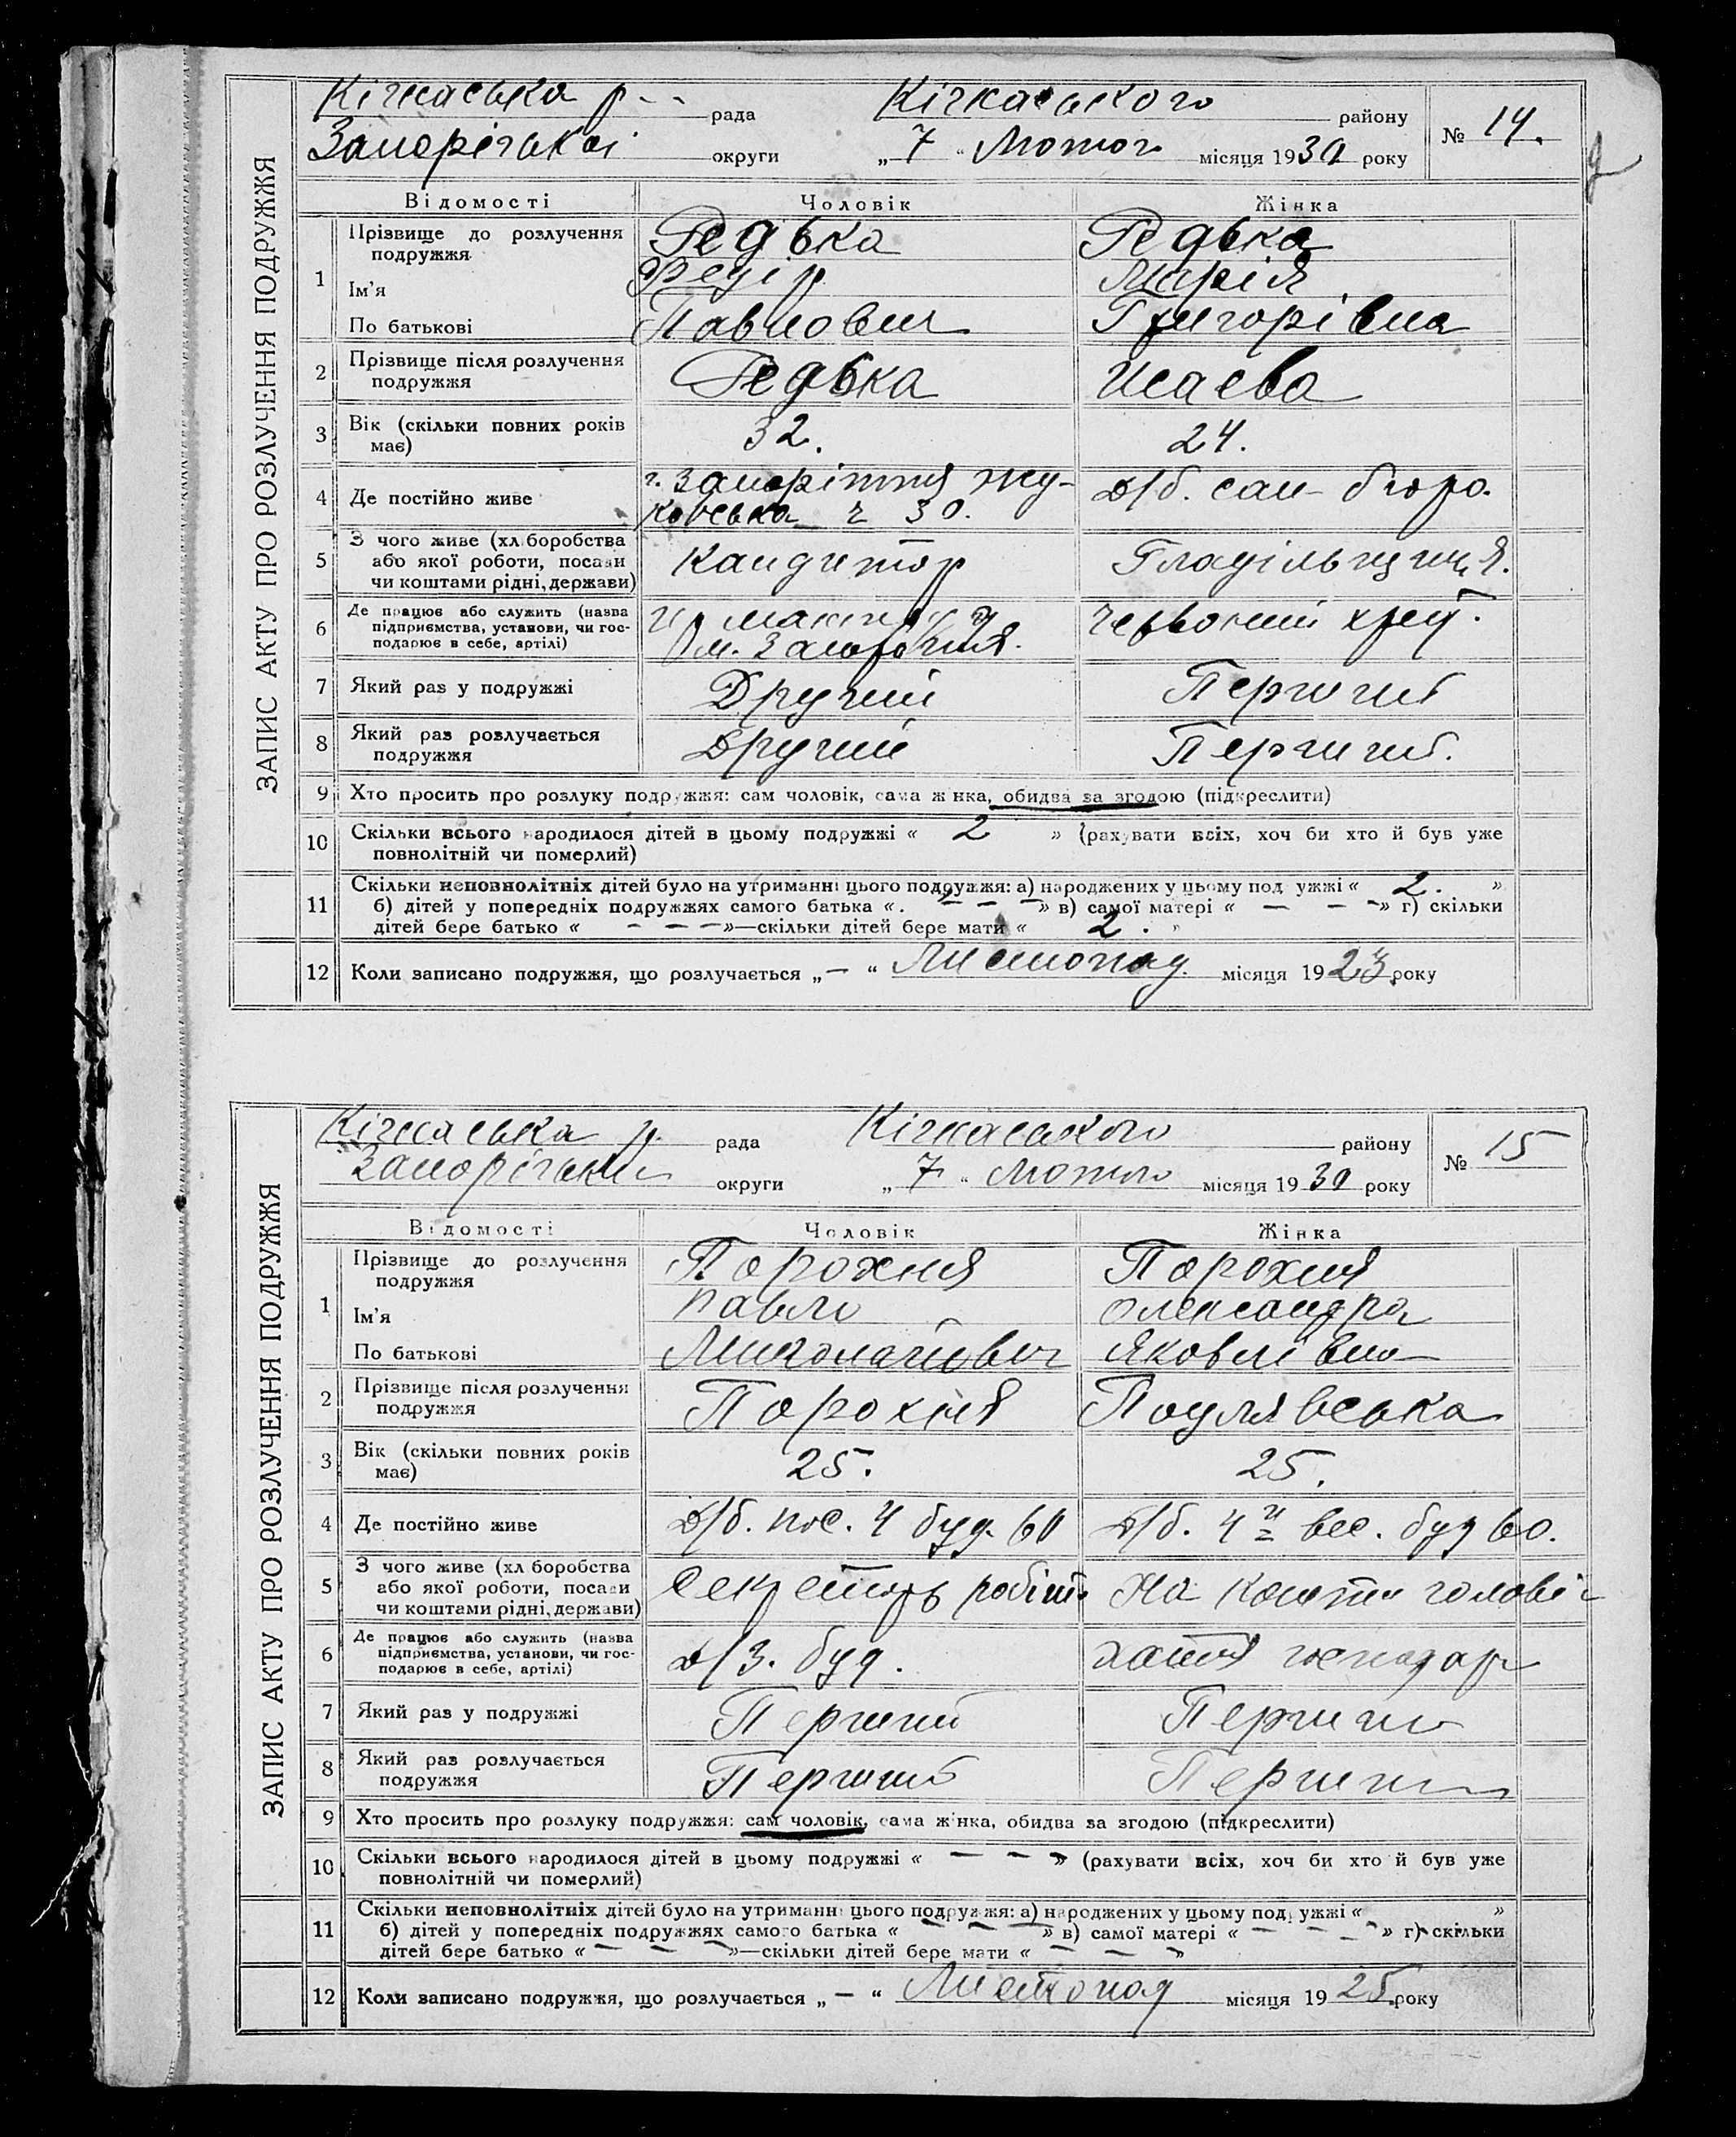 ЗАПИС АКТУ ПРО РОЗЛУЧЕННЯ ПОДРУЖЖЯ
Кічкаська р-- рада Кічкаського району № 14.
Запорізької округи „7“ Лютого місяця 1930 року
Відомості Чоловік Жінка
1 Прізвище до розлучення подружжя Редька Редька
Ім'я Федір Марія
По батькові Павлович Григорівна
2 Прізвище після розлучення подружжя Редька Исаева
3 Вік (скільки повних років має) 32. 24.
4 Де постійно живе г. Запоріжжя Жу-
ковська 30. Д/б. сан- бюро.
5 З чого живе (хліборобства
або якої роботи, посади
чи коштами рідні, держави) Кандитор Гладільщиця.
6 Де працює або служить (назва
підприємства, установи, чи гос-
подарює в себе, артілі) м. Запоріжжя. Червоний хрест.
7 Який раз у подружжі Другий Перший
8 Який раз розлучається
подружжя Другий Перший.
9 Хто просить про розлуку подружжя: сам чоловік, сама жінка, обидва за згодою (підкреслити)
10 Скільки всього народилося дітей в цьому подружжі « 2 » (рахувати всіх, хоч би хто й був уже
повнолітній чи померлий)
11 Скільки неповнолітніх дітей було на утриманні цього подружжя: а) народжених у цьому подружжі « 2. »
б) дітей у попередніх подружжях самого батька « — — — » в) самої матері « — — — » г) скільки
дітей бере батько « — — — »—скільки дітей бере мати « 2. »
12 Коли записано подружжя, що розлучається „ — “ Листопад місяця 1923 року
ЗАПИС АКТУ ПРО РОЗЛУЧЕННЯ ПОДРУЖЖЯ
Кічкаська р. рада Кічкаського району № 15
Запорізької округи „7“ Лютого місяця 1930 року
Відомості Чоловік Жінка
1 Прізвище до розлучення
подружжя Порохня Порохня
Ім'я Павло Олександра
По батькові Миколайович Яковлівна
2 Прізвище після розлучення
подружжя Порохня
3 Вік (скільки повних років
має) 25. 25.
4 Де постійно живе Д/б. пос. 4 буд. 60 Д/б. 4й вес. буд 60.
5 З чого живе (хліборобства
або якої роботи, посади
чи коштами рідні, держави) Секретарь робіт. На кошти
6 Де працює або служить (назва
підприємства, установи, чи гос-
подарює в себе, артілі) Д/З. буд. хатня господар
7 Який раз у подружжі Перший Перший
8 Який раз розлучається
подружжя Перший Перший
9 Хто просить про розлуку подружжя: сам чоловік, сама жінка, обидва за згодою (підкреслити)
10 Скільки всього народилося дітей в цьому подружжі « — — — » (рахувати всіх, хоч би хто й був уже
повнолітній чи померлий)
11 Скільки неповнолітніх дітей було на утриманні цього подружжя: а) народжених у цьому подружжі « »
б) дітей у попередніх подружжях самого батька « — — — » в) самої матері « — — — » г) скільки
дітей бере батько « — — — »—скільки дітей бере мати « — — — »
12 Коли записано подружжя, що розлучається „ — “ Листопад місяця 1925 року